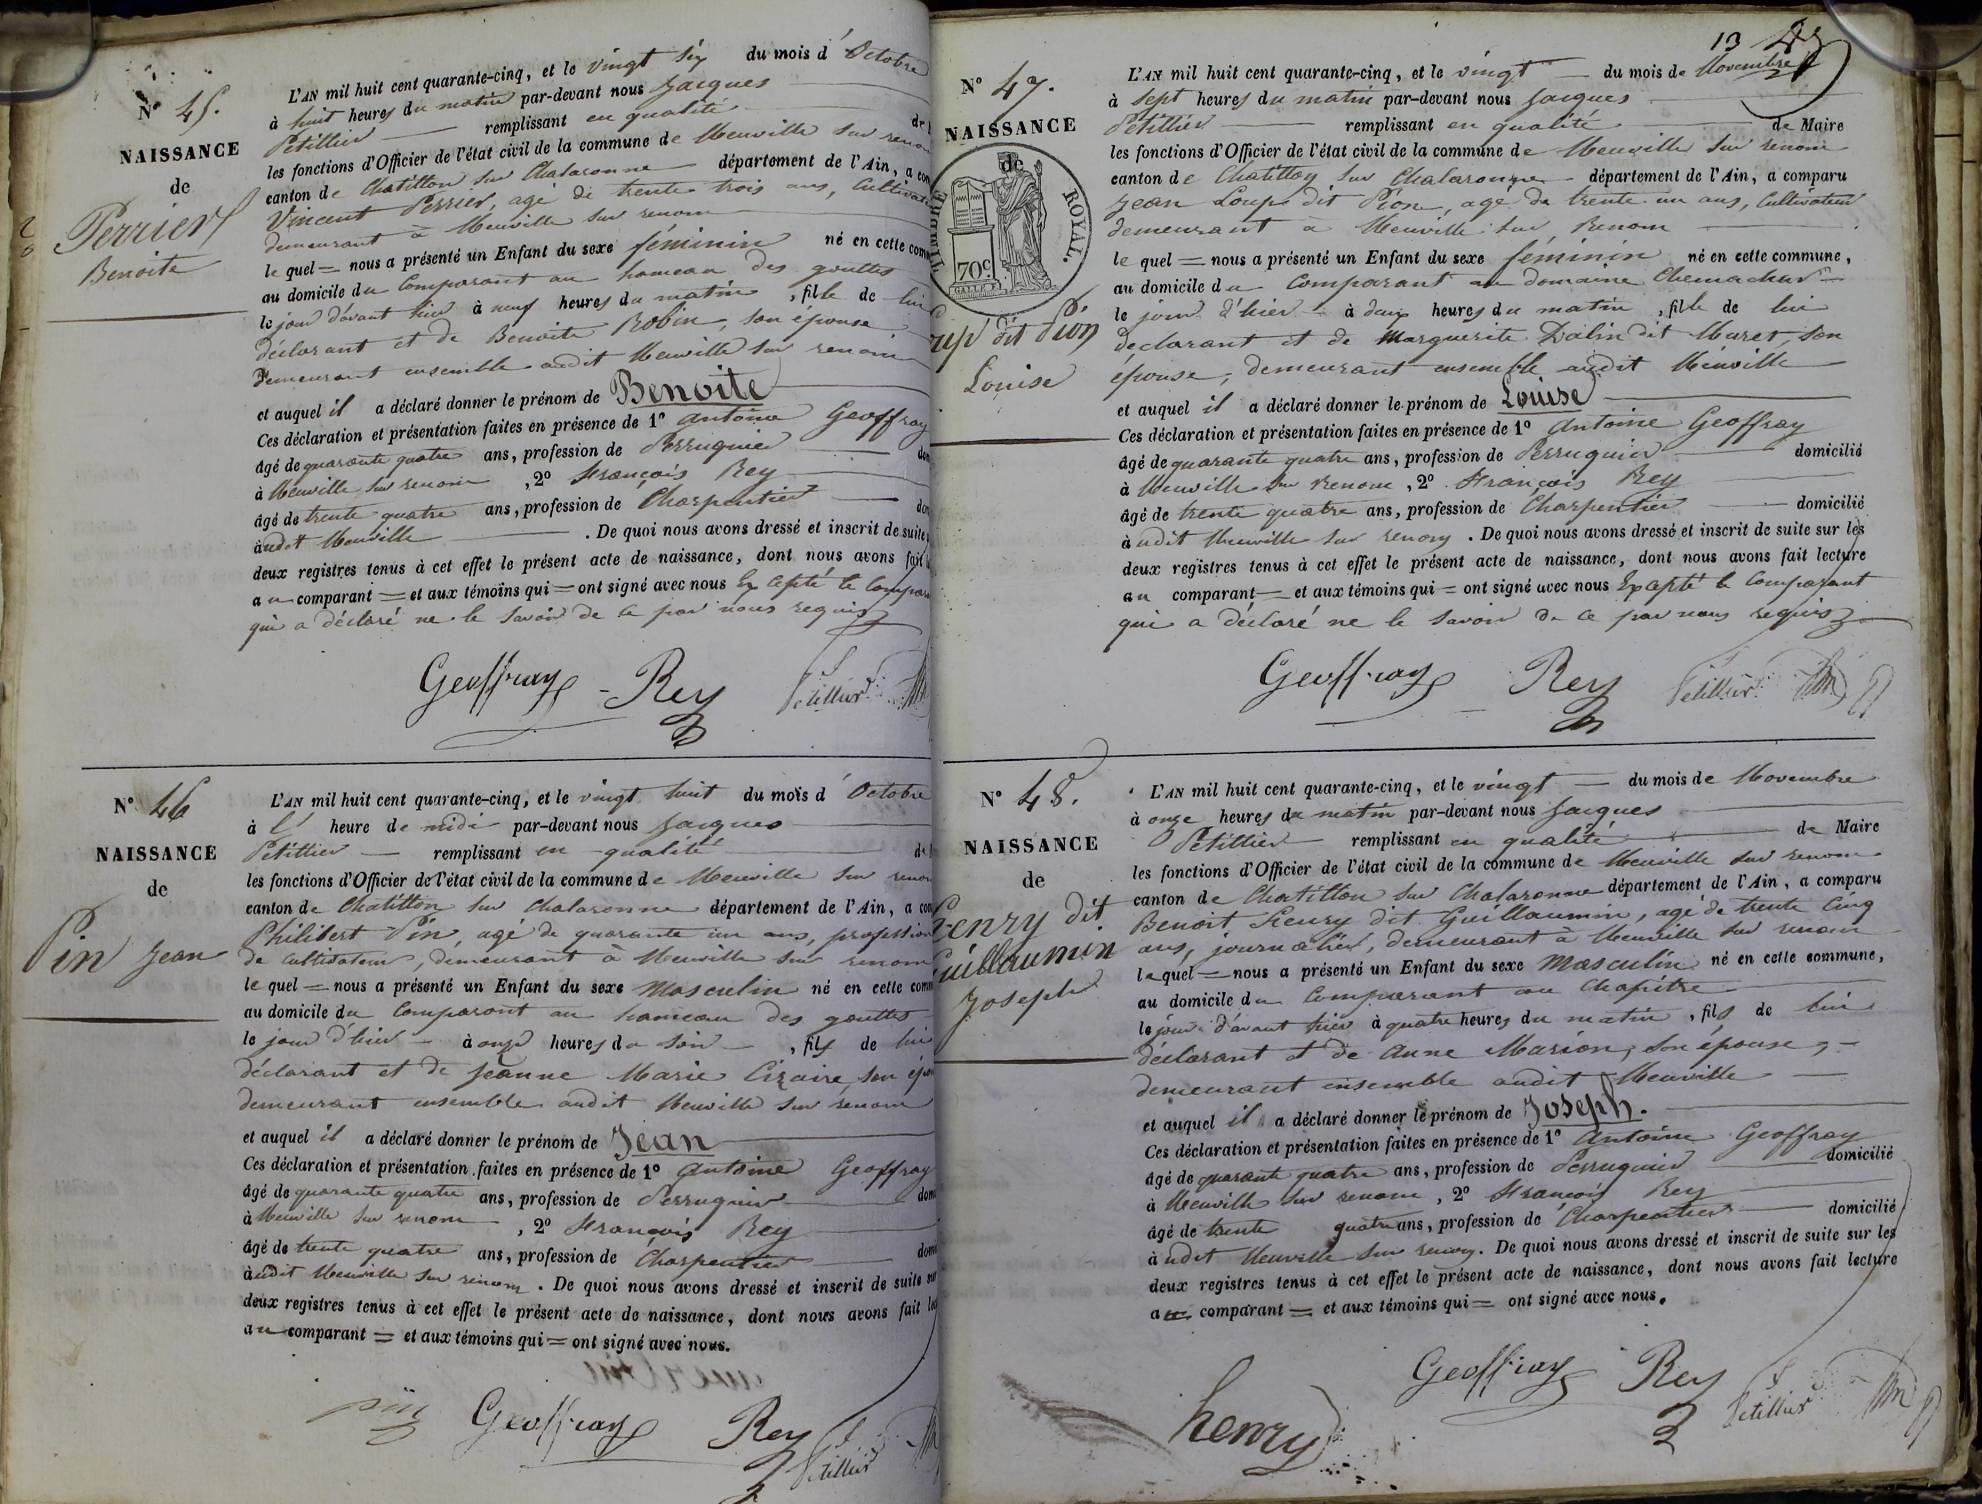 N° 45.
NAISSANCE
de
Perrier
Benoite
L'AN mil huit cent quarante-cinq, et le vingt six du mois d'Octobre
à huit heures du matin par-devant nous Jacques
Petillier remplissant en qualité de
les fonctions d'Officier de l'état civil de la commune de Neuville sur renom
canton de Chatillon sur Chalaronne département de l'Ain, a com
Vincent Perrier, agé de trente trois ans, Cultivat
demeurant à Neuville sur renom
le quel = nous a présenté un Enfant du sexe féminin né en cette comm
au domicile du Comparant au hameau des gouttes
le jour d'avant hier à neuf heures du matin, fille de lui
déclarant et de Benoite Robin, son épouse
demeurant ensemble audit Neuville sur renom
et auquel il a déclaré donner le prénom de Benoite
Ces déclaration et présentation faites en présence de 1° Antoine Geoffray
âgé de quarante quatre ans, profession de Perruquier dom
à Neuville sur renom, 2° François Rey
âgé de trente quatre ans, profession de Charpentier dom
à udit Neuville . De quoi nous avons dressé et inscrit de suite
deux registres tenus à cet effet le présent acte de naissance, dont nous avons fait
au comparant = et aux témoins qui = ont signé avec nous Excepté le Compar
qui a déclaré ne le savoir de ce par nous requis
Geoffray Rey Petillier
N° 46
NAISSANCE
de
Pin Jean
L'AN mil huit cent quarante-cinq, et le vingt huit du mois d'Octobre
à l' heure de midi par-devant nous Jacques
Petillier remplissant en qualité de
les fonctions d'Officier de l'état civil de la commune de Neuville sur renom
canton de Chatillon sur Chalaronne département de l'Ain, a com
Philibert Pin, agé de quarante un ans, profession
de cultivateur, demeurant à Neuville sur renom
le quel = nous a présenté un Enfant du sexe Masculin né en cette comm
au domicile du Comparant au hameau des gouttes
le jour d'hier à onze heures du soir, fils de lui
déclarant et de Jeanne Marie Cizaire, son épou
demeurant ensemble audit Neuville sur renom
et auquel il a déclaré donner le prénom de Jean
Ces déclaration et présentation faites en présence de 1° Antoine Geoffray
âgé de quarante quatre ans, profession de Perruquier dom
à Neuville sur renom, 2° François Rey
âgé de trente quatre ans, profession de Charpentier domi
à udit Neuville sur renom. De quoi nous avons dressé et inscrit de suite sur
deux registres tenus à cet effet le présent acte de naissance, dont nous avons fait lec
au comparant = et aux témoins qui = ont signé avec nous.
pin Geoffray Rey Petillier
13
N° 47.
NAISSANCE
de
TIMBRE ROYAL.
70c
Loup dit Pion
Louise
L'AN mil huit cent quarante-cinq, et le vingt du mois de Novembre
à sept heures du matin par-devant nous Jacques
Petillier remplissant en qualité de Maire
les fonctions d'Officier de l'état civil de la commune de Neuville sur renom
canton de Chatillon sur Chalaronne département de l'Ain, a comparu
Jean Loup dit Pion, agé de trente un ans, Cultivateur
demeurant à Neuville sur Renom
le quel = nous a présenté un Enfant du sexe féminin né en cette commune,
au domicile du Comparant au domaine
le jour d'hier à deux heures du matin, fille de lui
declarant et de Marguerite Dalin dit Muret, son
épouse, demeurant ensemble audit Neuville
et auquel il a déclaré donner le prénom de Louise
Ces déclaration et présentation faites en présence de 1° Antoine Geoffray
âgé de quarante quatre ans, profession de Perruquier domicilié
à Neuville sur Renom, 2° François Rey
âgé de trente quatre ans, profession de Charpentier domicilié
à udit Neuville sur renom. De quoi nous avons dressé et inscrit de suite sur les
deux registres tenus à cet effet le présent acte de naissance, dont nous avons fait lecture
au comparant = et aux témoins qui = ont signé avec nous Excepté le Comparant
qui a déclaré ne le savoir de ce par nous requis
Geoffray Rey Petillier
N° 48.
NAISSANCE
de
henry dit
Guillaumin
Joseph
L'AN mil huit cent quarante-cinq, et le vingt du mois de Novembre
à onze heures du matin par-devant nous Jacques
Petillier remplissant en qualité de Maire
les fonctions d'Officier de l'état civil de la commune de Neuville sur renom
canton de Chatillon sur Chalaronne département de l'Ain, a comparu
Benoit henry dit Guillaumin, agé de trente cinq
ans, journalier, demeurant à Neuville sur renom
le quel = nous a présenté un Enfant du sexe Masculin né en cette commune,
au domicile du Comparant au Chapitre
le jour d'avant hier à quatre heures du matin, fils de lui
déclarant et de Anne Marion, son épouse,
demeurant ensemble audit Neuville
et auquel il a déclaré donner le prénom de Joseph.
Ces déclaration et présentation faites en présence de 1° Antoine Geoffray
âgé de quarante quatre ans, profession de Perruquier domicilié
à Neuville sur renom, 2° François Rey
âgé de trente quatre ans, profession de Charpentier domicilié
à udit Neuville sur renom. De quoi nous avons dressé et inscrit de suite sur les
deux registres tenus à cet effet le présent acte de naissance, dont nous avons fait lecture
au comparant = et aux témoins qui = ont signé avec nous.
henry Geoffray Rey Petillier